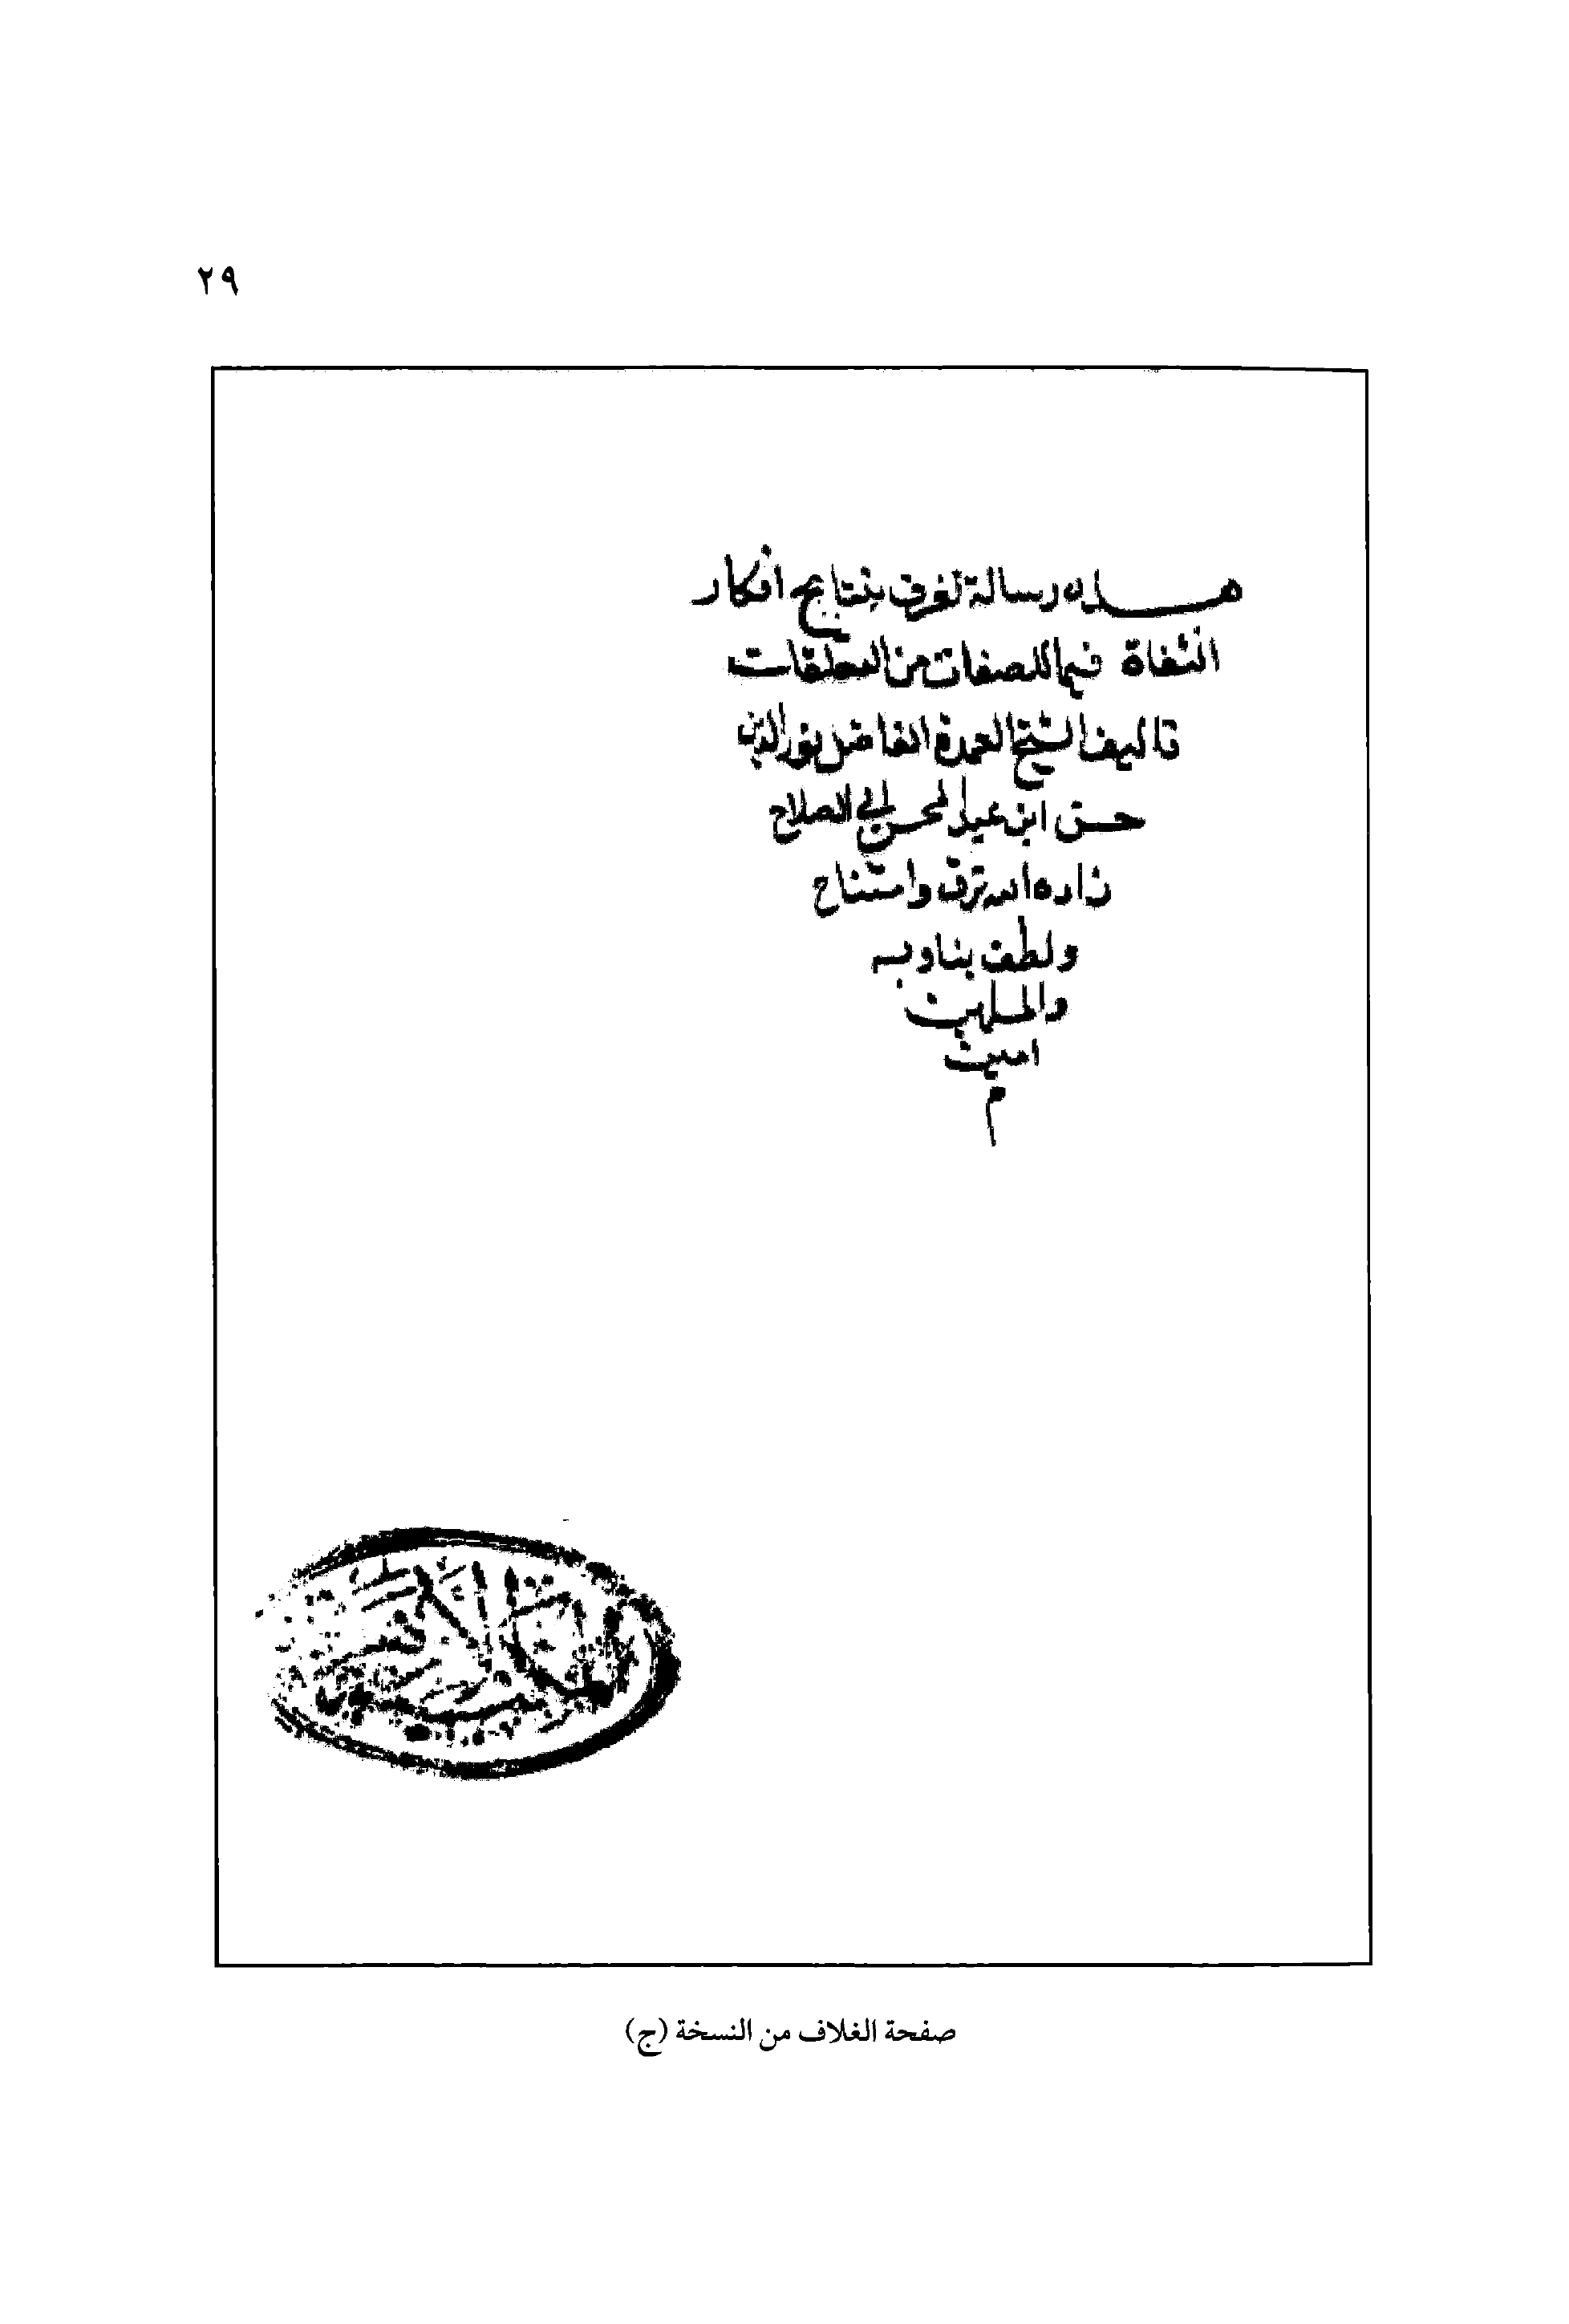 ٢٩
هذه رسالة تعرف بنتايج افكار
الثقاة فيما للصفات من المتعلقات
تاليف الشيخ العمدة الفاضل نور الدين
حسن ابن عبد المحسن ابي الصلاح
زاده الله ترق وامتناح
ولطف بنا وبه
والمسلمين
امين
م
صفحة الغلاف من النسخة (ج)